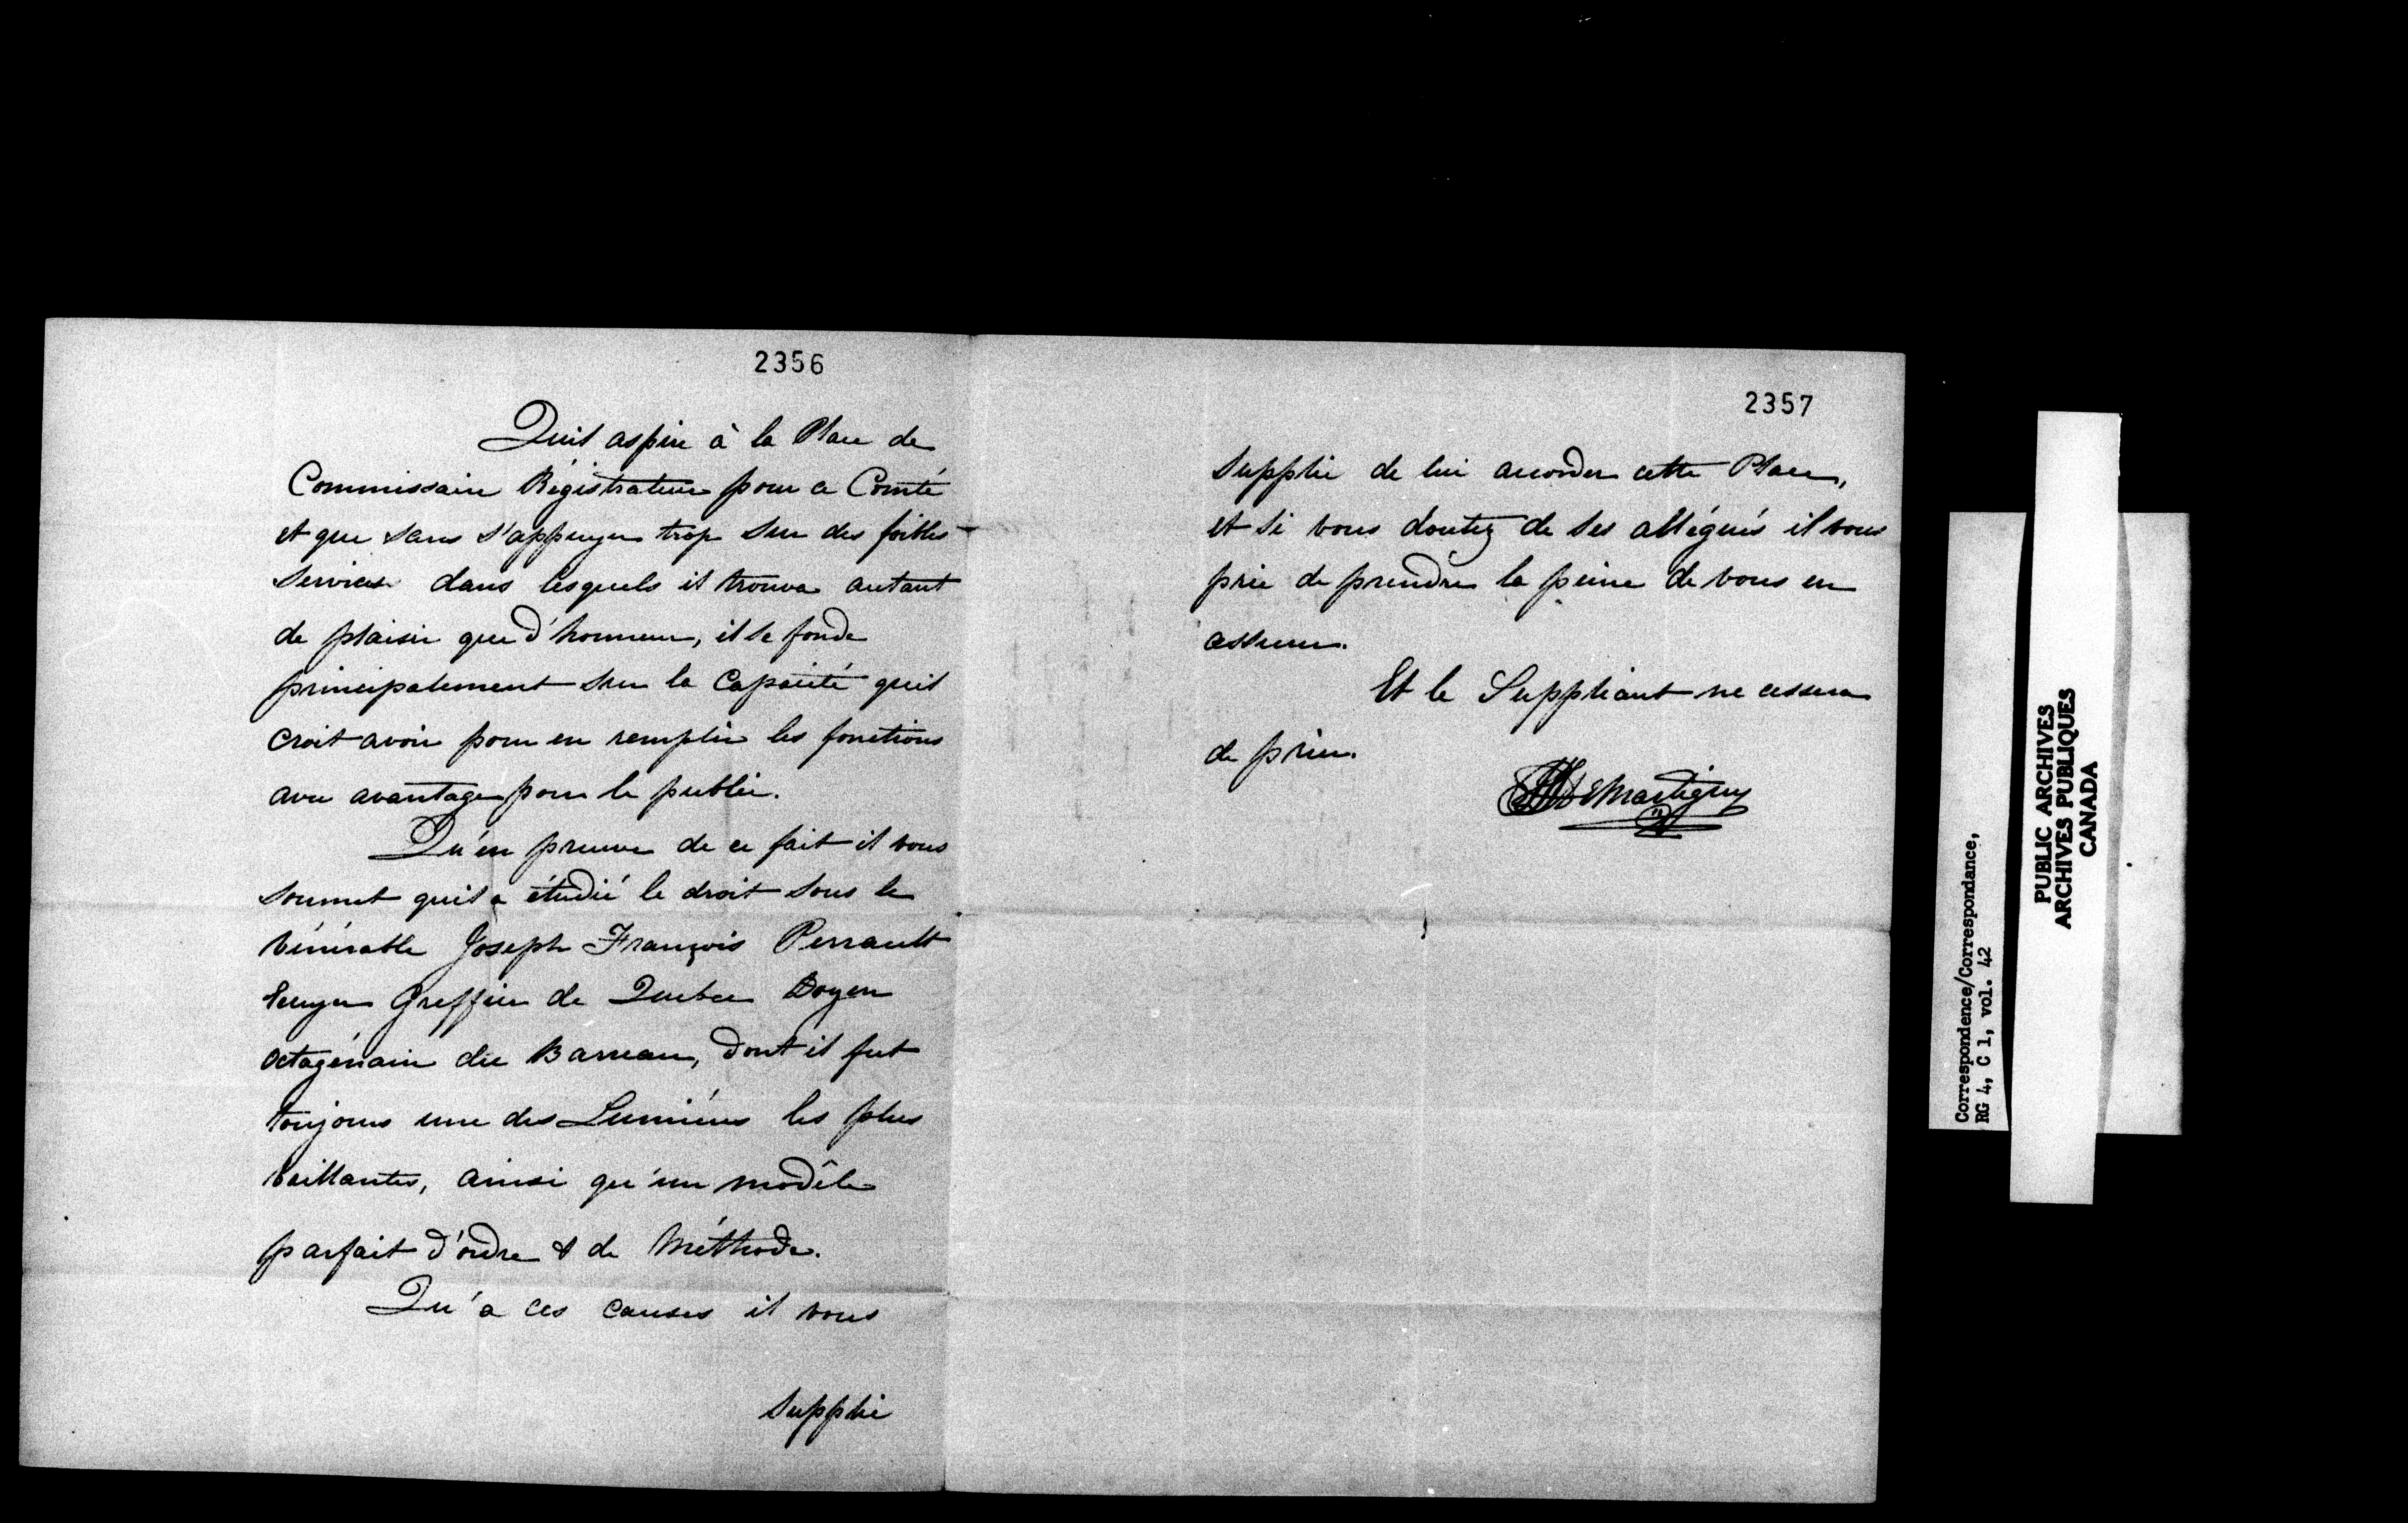 2356
Quil aspire à la Place de
Commissaire Régistrateur pour ce Comté
et que sans s'appuyer trop sur des foibles
Services dans lesquels il trouva autant
de plaisir que d'honneur, il se fonde
principalement sur la Capacité quil
croit avoir pour en remplir les fonctions
avec avantage pour le public.
Qu'en preuve de ce fait il vous
soumet quil a étudié le droit sous le
Vénérable Joseph François Perrault
Ecuyer Greffier de Quebec Doyen
Octagénaire du Barreau, dont il fut
toujours une des Lumières les plus
brillantes, ainsi qu'un modêle
parfait d'ordre & de Méthode.
Qu'a ces causes il vous
supplie
2357
supplie de lui accorder cette Place,
et si vous doutez de ses allégués il vous
prie de prendre la peine de vous en
assurer.
Et le Suppliant ne cessera
de prier.
DeMartigny
Correspondence/Correspondance,
RG 4, C 1, vol. 42
PUBLIC ARCHIVES
ARCHIVES PUBLIQUES
CANADA